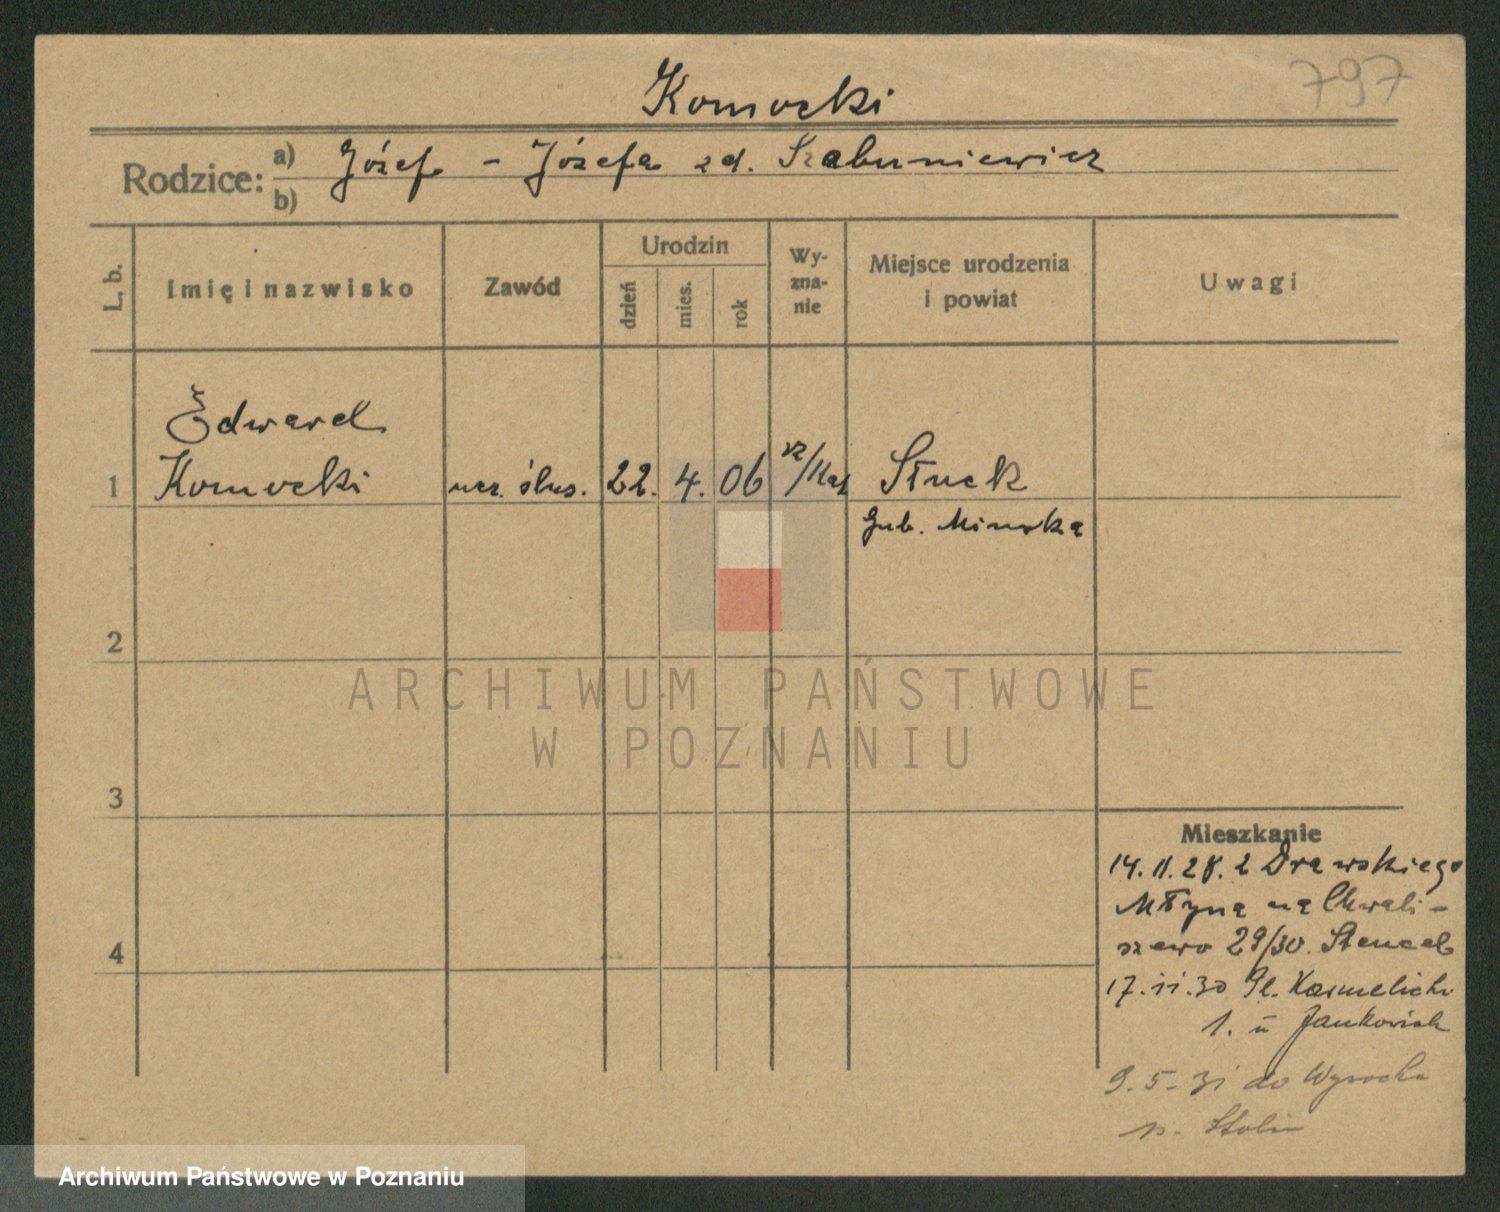 797
Komocki
Rodzice:
a) Józef - Józefa zd. Szabuniewicz
b)
L. b.
Imię i nazwisko
Zawód
Urodzin
dzień
mies.
rok
Wy-
zna-
nie
Miejsce urodzenia
i powiat
Uwagi
Edward
1 Komocki ucz. ślus. 22. 4. 06 rz/Kat Słuck
Gub. Mińska
2
3
4
Mieszkanie
14.11.28. z Drawskiego
Młyna na Chwali-
szewo 29/30. Stencel
17.11.30 Pl. Karmelicki
1. u Jankowiak
9.5-31 do Wysocka
p. Stolin
ARCHIWUM PAŃSTWOWE
W POZNANIU
Archiwum Państwowe w Poznaniu